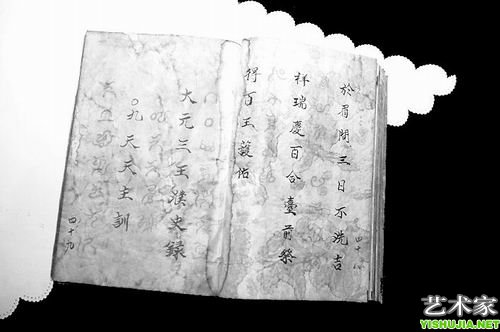 於眉間三日不洗吉
祥瑞慶百合臺前祭
得百王護佑
四十八
大元三王濮史録
〇九天天主訓
四十九
艺术家
YISHUJIA.NET